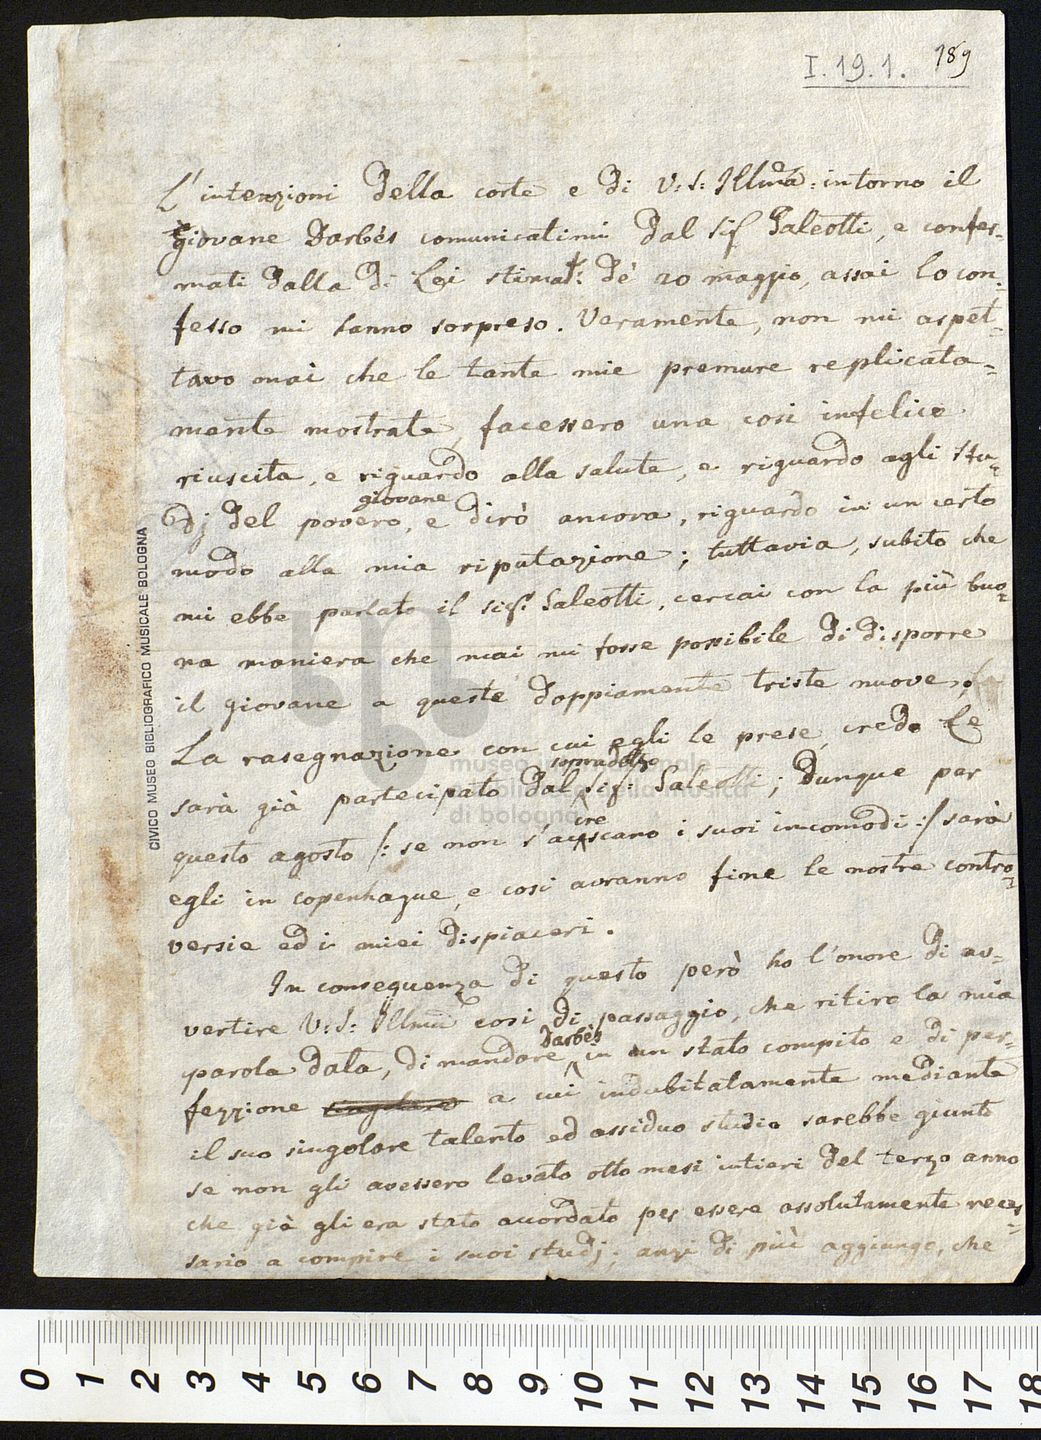 I.19.1. 189
L'intenzioni della corte e di V:S: Illma: intorno il
giovane Darbès comunicatimi dal Sig Galeotti, e confer-
mati dalla di Lei stimat: de' 20 maggio, assai lo con-
fesso mi hanno sorpreso. Veramente, non mi aspet-
tavo mai che le tante mie premure replicata-
mente mostrate, facessero una cosi infelice
riuscita, e riguardo alla salute, e riguardo agli stu-
dj del povero giovane, e dirò ancora, riguardo in un certo
modo alla mia riputazione; tuttavia, subito che
mi ebbe parlato il sig: Galeotti, cercai con la più buo-
na maniera che mai mi fosse possibile di disporre
il giovane a queste doppiamente triste nuove.
La rasegnazione con cui egli le prese, credo Le
sarà già partecipato dal sopradetto Sig: Galeotti; Dunque per
questo agosto /: se non s'acrescano i suoi incomodi :/ sarà
egli in Copenhague, e cosi avranno fine le nostre contro-
versie ed i miei dispiaceri.
In conseguenza di questo però ho l'onore di av-
vertire V:S: Illma cosi di passaggio, che ritiro la mia
parola data, di mandare Darbès in un stato compito e di per-
fezzione a cui indubitatamente mediante
il suo singolare talento ed assiduo studio sarebbe giunto
se non gli avessero levato otto mesi intieri del terzo anno
che già gli era stato acordato per essere assolutamente neces-
sario a compire i suoi studj; anzi di più aggiungo, che
CIVICO MUSEO BIBLIOGRAFICO MUSICALE BOLOGNA
museo internazionale
e biblioteca della musica
di bologna
0 1 2 3 4 5 6 7 8 9 10 11 12 13 14 15 16 17 18